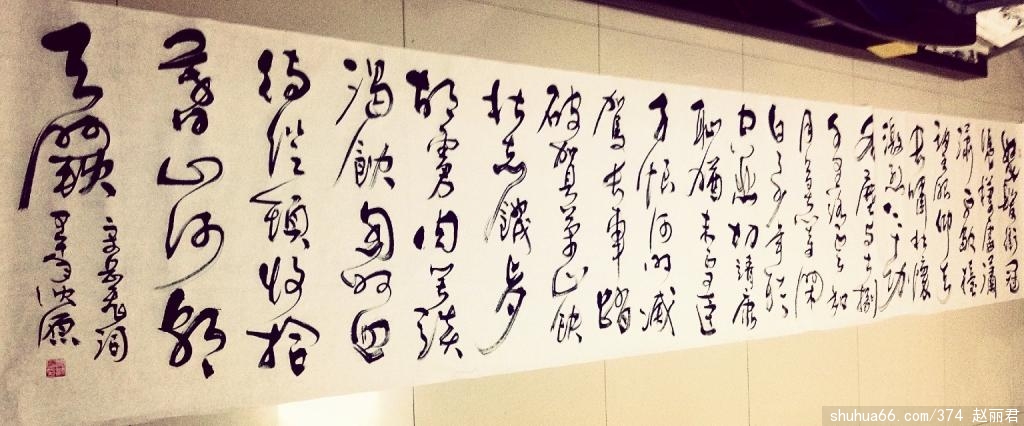 怒髮衝冠
憑欄處瀟
瀟雨歇抬
望眼仰天
長嘯壯懷
激烈三十功
名塵与土八
千里路雲和
月莫等閒
白了少年頭
空悲切靖康
恥猶未雪臣
子恨何時滅
駕長車踏
破賀蘭山缺
壯志饑餐
胡虜肉笑談
渴飲匈奴血
待從頭收拾
舊山河朝
天闕
岳飛詞
shuhua66.com/374 赵丽君